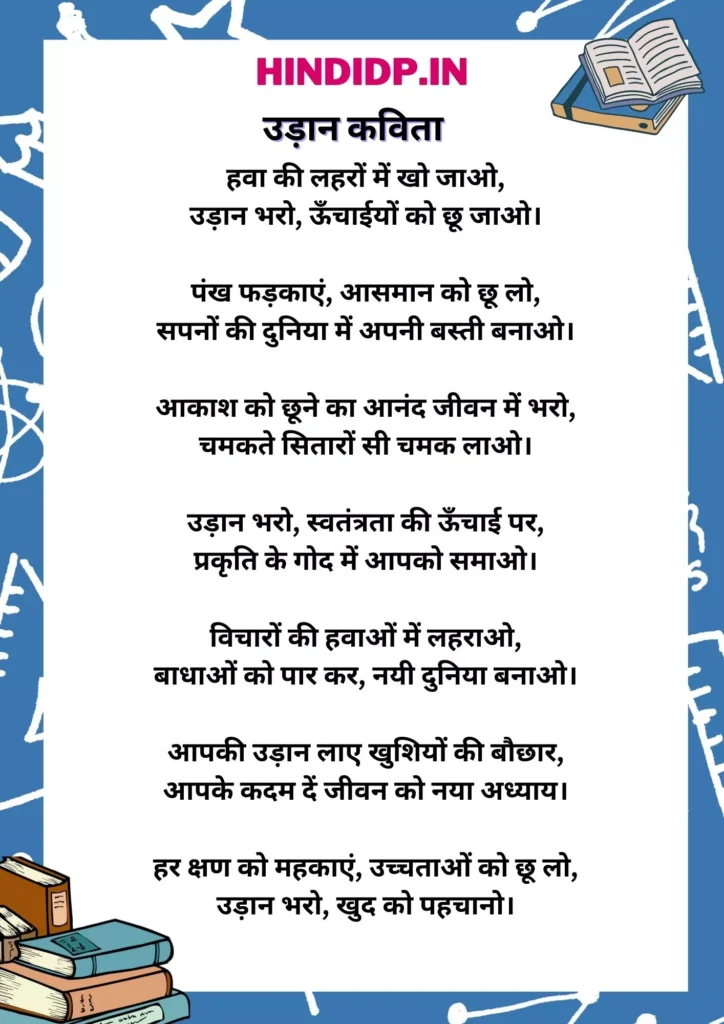 HINDIDP.IN
उड़ान कविता
हवा की लहरों में खो जाओ,
उड़ान भरो, ऊँचाईयों को छू जाओ।
पंख फड़काएं, आसमान को छू लो,
सपनों की दुनिया में अपनी बस्ती बनाओ।
आकाश को छूने का आनंद जीवन में भरो,
चमकते सितारों सी चमक लाओ।
उड़ान भरो, स्वतंत्रता की ऊँचाई पर,
प्रकृति के गोद में आपको समाओ।
विचारों की हवाओं में लहराओ,
बाधाओं को पार कर, नयी दुनिया बनाओ।
आपकी उड़ान लाए खुशियों की बौछार,
आपके कदम दें जीवन को नया अध्याय।
हर क्षण को महकाएं, उच्चताओं को छू लो,
उड़ान भरो, खुद को पहचानो।